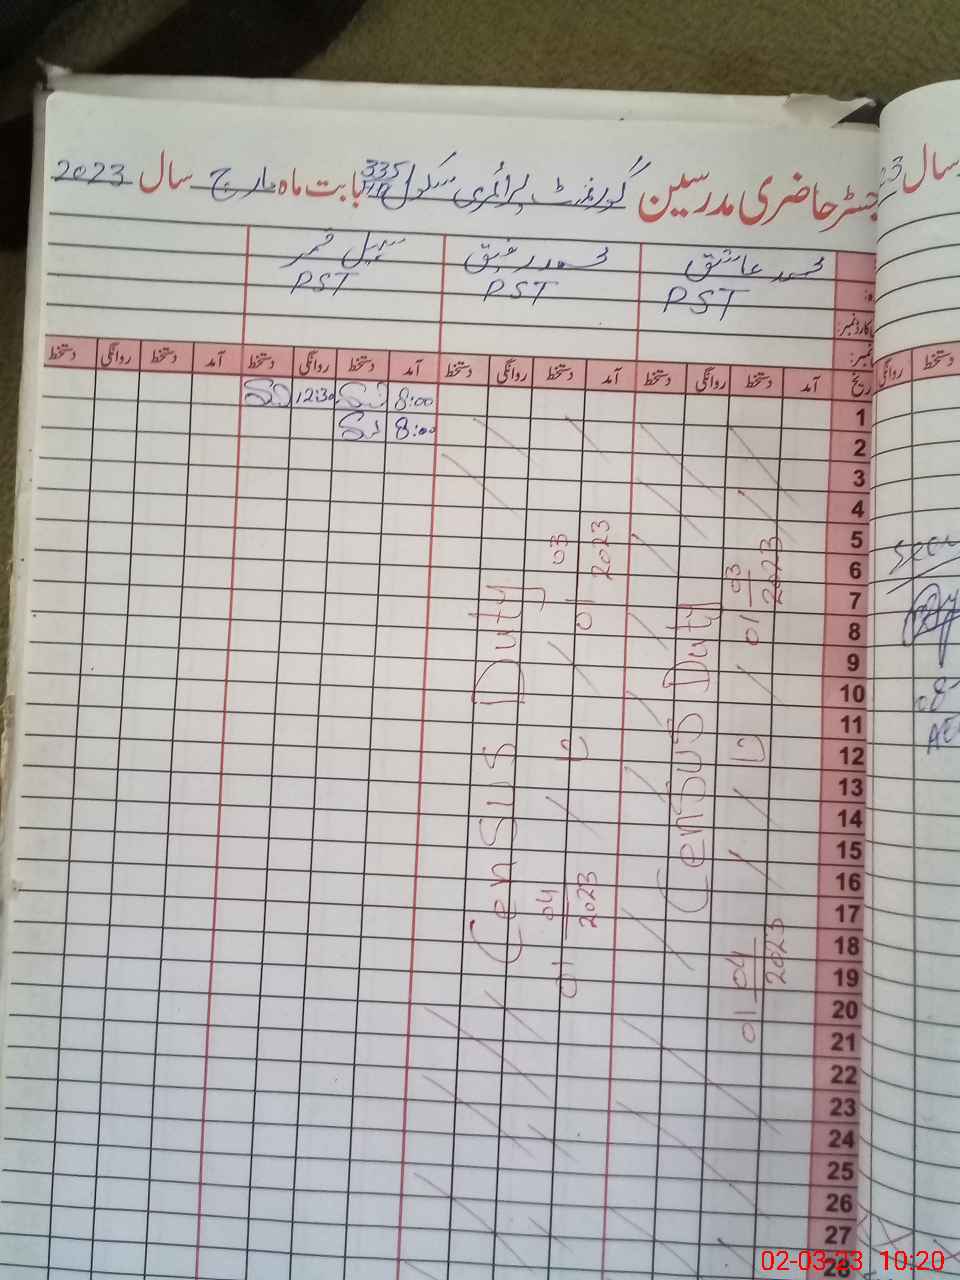 رجسٹر حاضری مدرسین گورنمنٹ پرائمری سکول 335 بابت ماہ مارچ سال 2023
محمد عاشق محمد رفیق سہیل قمر
PST PST PST
کارڈ نمبر:
نمبر:
تاریخ آمد دستخط روانگی دستخط آمد دستخط روانگی دستخط آمد دستخط روانگی دستخط آمد دستخط روانگی دستخط
1 8:00 12:30
2 8:00
3
4
5
6
7
8
9
10
11
12
13
14
15
16
17
18
19
20
21
22
23
24
25
26
27
28
Census Duty
01 03 2023
01 04 2023
Census Duty
01 03 2023
01 04 2023
سال
روانگی دستخط
02-03-23 10:20